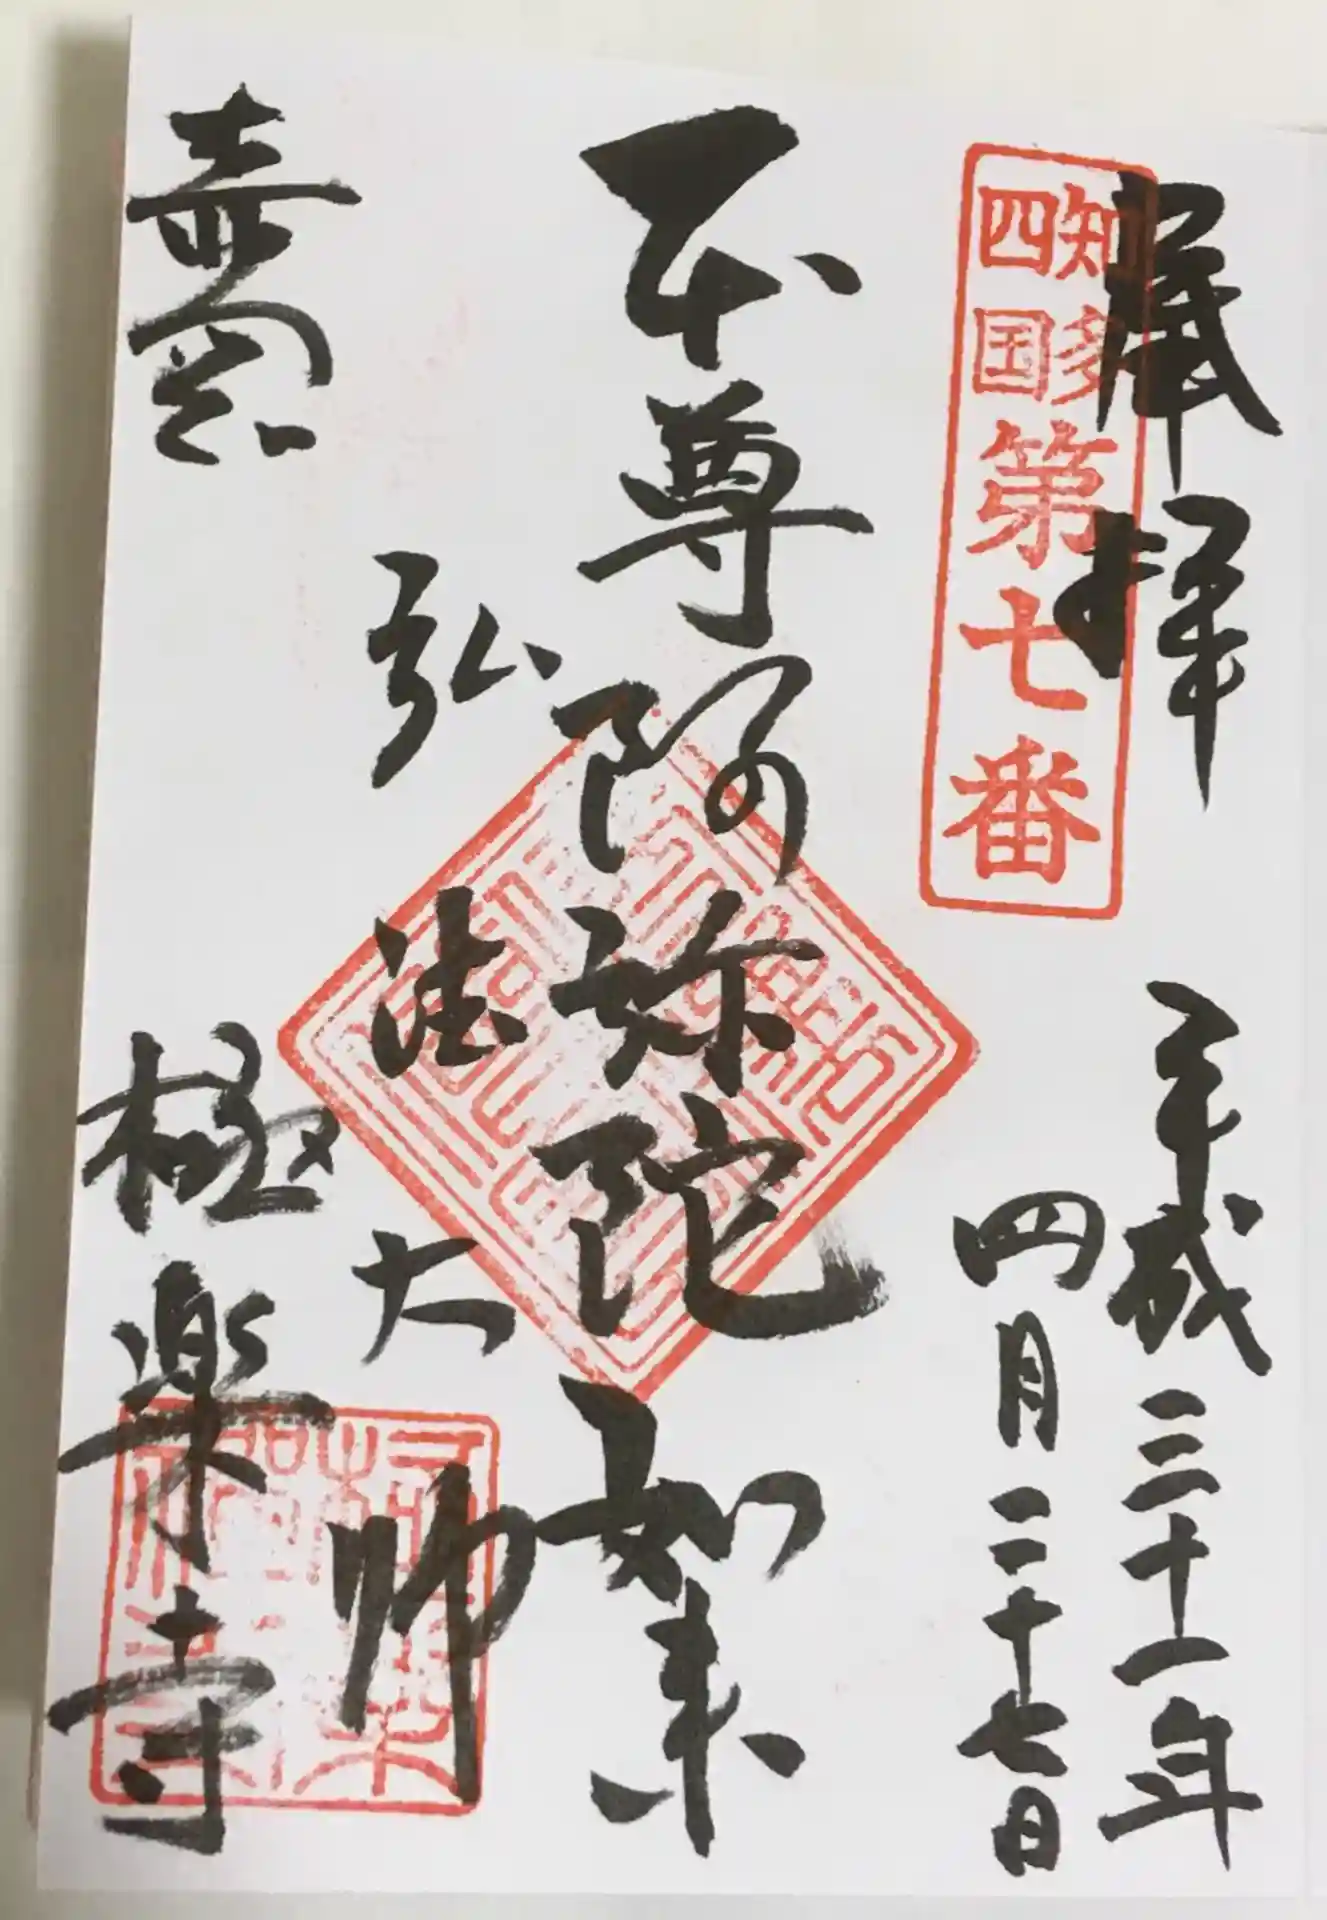 奉拝
平成三十一年
四月二十七日
知多
四国
第七番
本尊阿弥陀如来
弘法大師
極楽寺